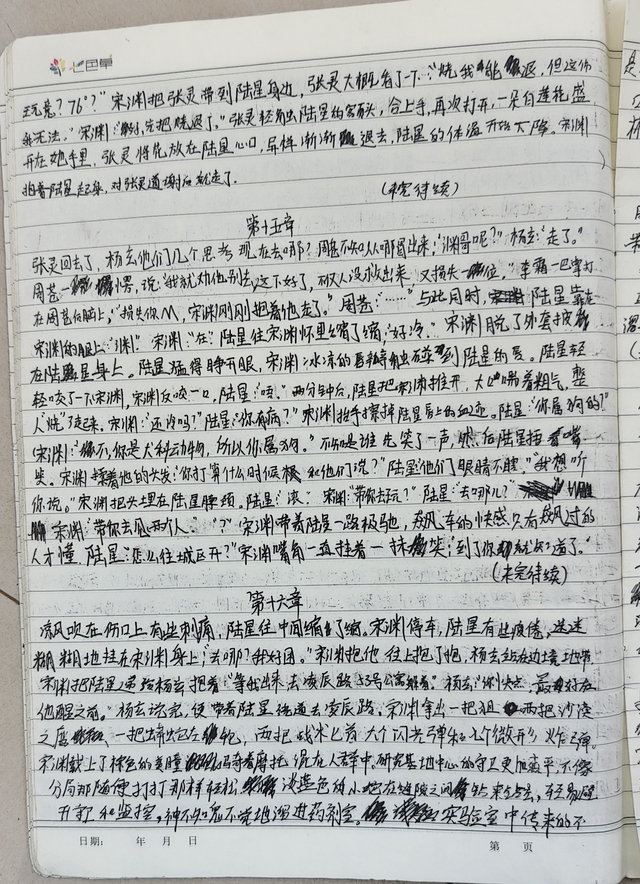 七色草
玩意？76°？”宋渊把张灵带到陆星身边，张灵大概看了一下：“烧我能退，但这伤
我无法。”宋渊：“先把烧退了。”张灵轻触陆星的额头，合上手，再次打开，一朵白莲花盛
开在她手里，张灵将花放在陆星心口，异样渐渐退去，陆星的体温开始下降。宋渊
抱着陆星起身，对张灵道谢后就走了。
（未完待续）
第十五章
张灵回去了，杨玄他们几个思考现在去哪？周茗不知从哪冒出来，“渊哥呢？”杨玄：“走了。”
周茗一愣，说“我就劝他别去，这下好了，个人没救出来，又损失一位。”李霜一巴掌打
在周茗后脑上，“损失你M，宋渊刚刚把着他走了。”周茗：“……”与此同时，陆星靠在
宋渊的腿上：“渊”宋渊：“在”陆星往宋渊怀里缩了缩，“好冷。”宋渊脱了外套披
在陆星身上。陆星猛得睁开眼，宋渊冰凉的唇瓣触碰到陆星的唇。陆星轻
轻咬了一下宋渊，宋渊反咬一口，陆星：“唔。”两分钟后，陆星把宋渊推开，大口喘着粗气，整
人“烧”了起来，宋渊：“还冷吗？”陆星：“你有病？”宋渊抬手擦掉陆星唇上的血迹。陆星：“你属狗的？”
宋渊：“不，你是犬科动物，所以你属狗。”不知是谁先笑了一声，然后陆星捂着嘴
笑。宋渊揉着他的头发：“你打算什么时候和他们说？”陆星：“他们眼睛不瞎。”“我想听
你说。”宋渊把头埋在陆星腰颈，陆星：“滚”宋渊：“带你去玩？”陆星：“去哪儿？”
宋渊：“带你去见两个人。”“？”宋渊带着陆星一路极驰，飙风车的快感只有飙过的
人才懂，陆星：“怎么往城区开？”宋渊嘴角一直挂着一抹笑：“到了你就知道了。”
（未完待续）
第十六章
凉风吹在伤口上有些刺痛，陆星往中间缩了缩，宋渊停车，陆星有些疲倦，迷迷
糊糊地挂在宋渊身上：“去哪？我好困。”宋渊抱他往上抱了抱，杨玄站在边境地带，
宋渊把陆星递给杨玄抱着：“等我出来去凌辰路53号公寓”杨玄：“你快点，最好在
他醒之前。”杨玄说完，便带着陆星绕道去凌辰路，宋渊拿出一把狙 两把沙漠
之鹰，一把蝴蝶 两把战术匕首 六个闪光弹和七个微形炸弹。
宋渊戴上了棕色的美瞳，骑着摩托，混在人群中，研究基地中心的守卫更加森严，不像
分局那随便打打那样轻松，淡蓝色的小蛇在缝隙之间钻来钻去，轻易避
开守卫和监控，神不知鬼不觉地溜进药剂室。实验室中传来的不
日期：　年　月　日
第　页